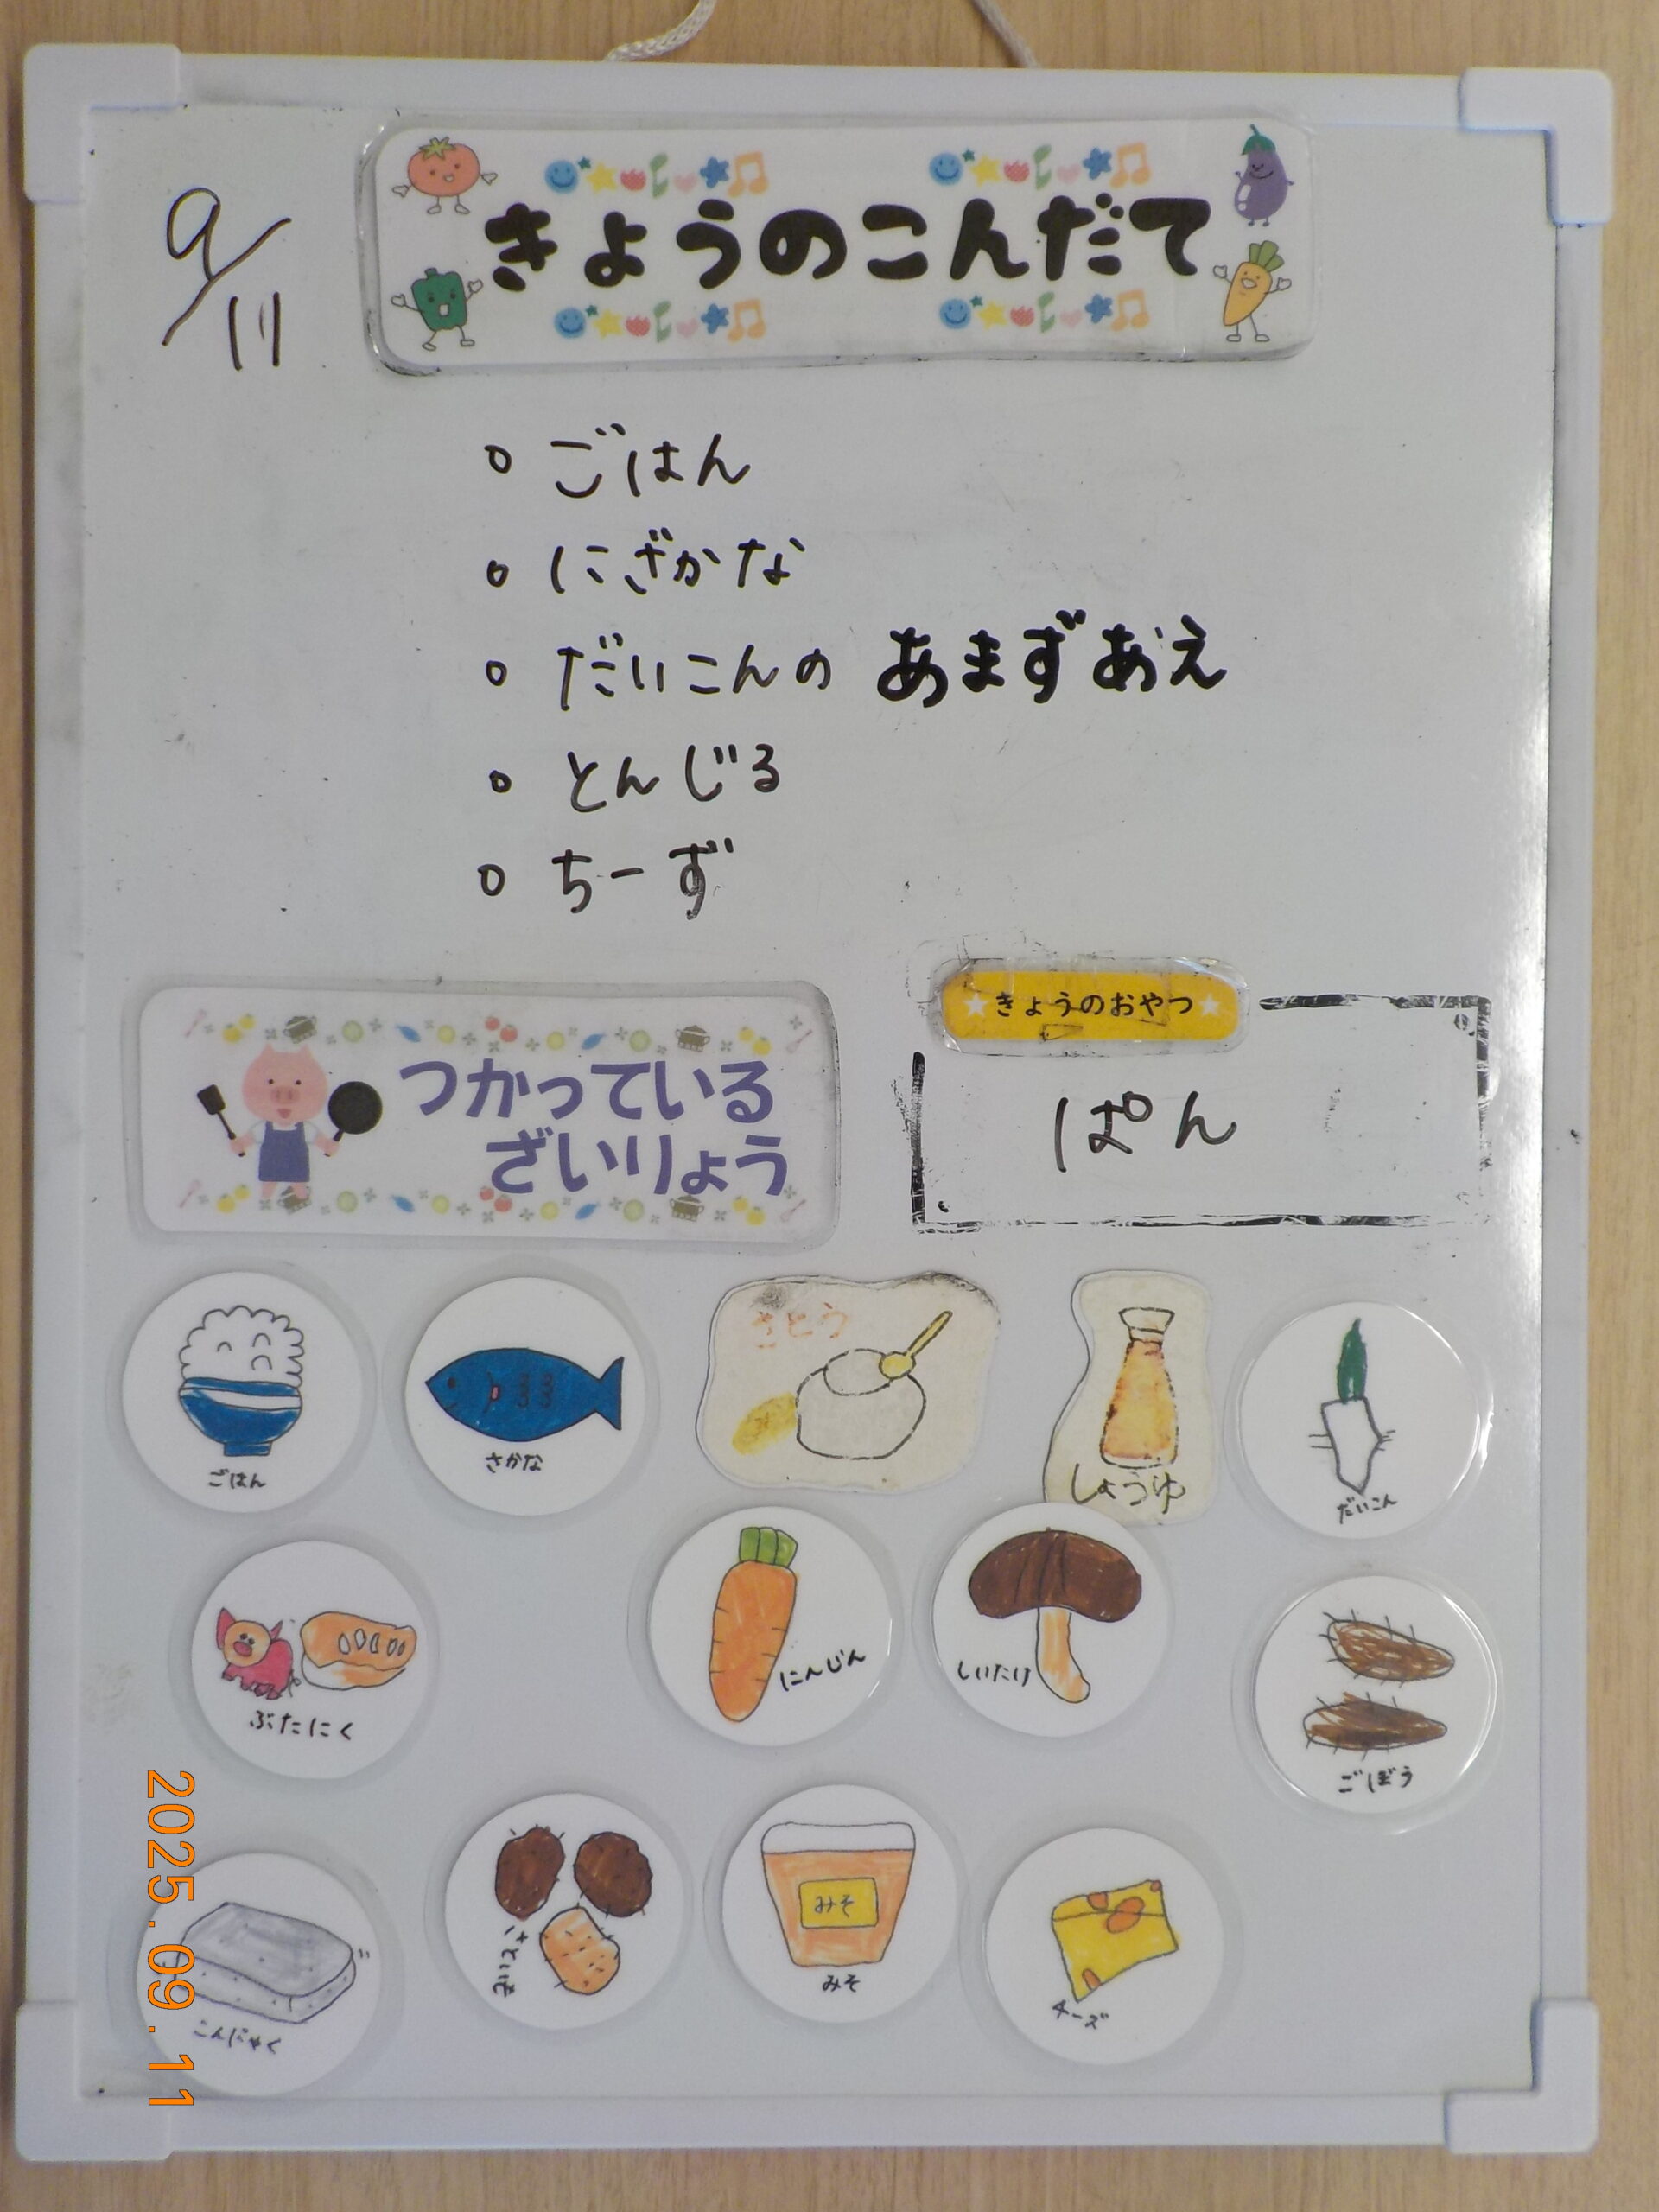 9/11
きょうのこんだて
○ ごはん
○ にざかな
○ だいこんの あまずあえ
○ とんじる
○ ちーず
きょうのおやつ
ぱん
つかっている
ざいりょう
ごはん
さかな
さとう
しょうゆ
だいこん
ぶたにく
にんじん
しいたけ
ごぼう
こんにゃく
さといも
みそ
みそ
チーズ
2025.09.11